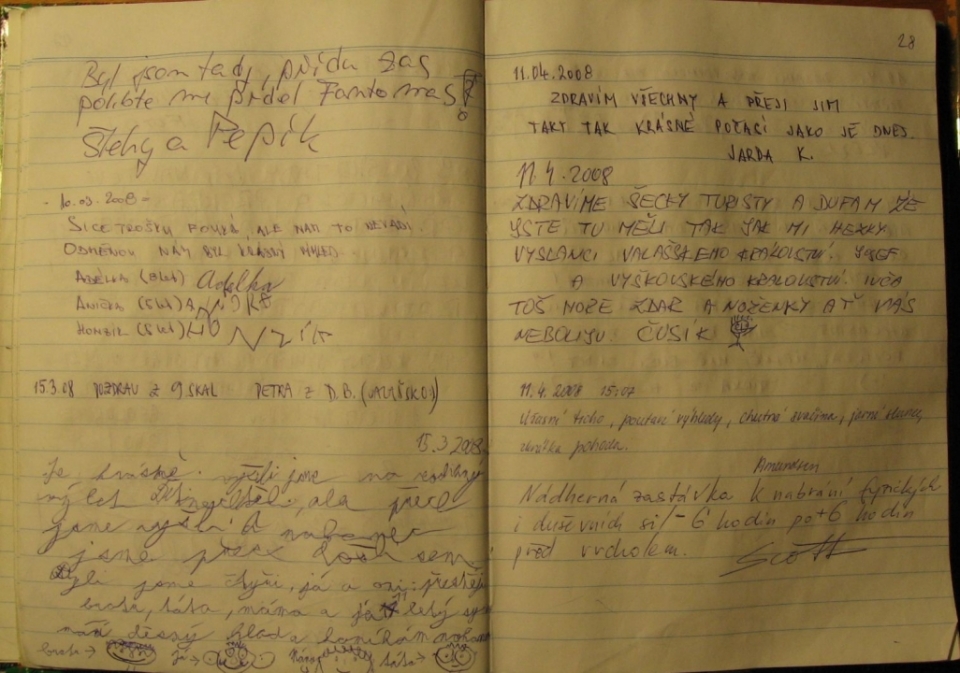 Byl jsem tady, přídu zas
polibte mi Fantomas!
Štehy a Pepík
- 10.03.2008 -
SICE TROŠKU FOUKÁ, ALE NÁM TO NEVADÍ.
ODMĚNOU NÁM BYL KRÁSNÝ VÝHLED.
ADÉLKA (8 let) Adélka
ANIČKA (5 let)
HONZÍK (5 let) HONZÍK
15.3.08 POZDRAV Z 9 SKAL PETRA Z D.B. (VALAŠSKO)
15.3.2008
Je krásně. vyšli jsme na
výlet, ale přece
jsme vyšli. A
jsme přes sem
jsme čtyři, já a můj
brácha, táta, máma a já letý
děsný hlad a
brácha → já → táta →
28
11.04.2008
ZDRAVÍM VŠECHNY A PŘEJI JIM
TAKY TAK KRÁSNÉ POČASÍ JAKO JE DNES.
JARDA K.
11.4.2008
ZDRAVÍME ŠECKY TURISTY A DUFAM ŽE
JSTE TU MĚLI TAK JAK MI HEZKY
VYSLANCI VALAŠSKÉHO KRÁLOLSTVÍ. JOSEF
A VYŠKOVSKÉHO KRALOVSTVÍ. IVČA
TOŠ MOŽE ZDAR A NOŽENKY AŤ VÁS
NEBOLIJU. ČUSIK
11.4.2008 15:07
Úžasné ticho, poutavé výhledy, chutná svačina, jarní slunce,
zkrátka pohoda.
Amundsen
Nádherná zastávka k nabrání fyzických
i duševních sil - 6 hodin po + 6 hodin
před vrcholem.
Scott